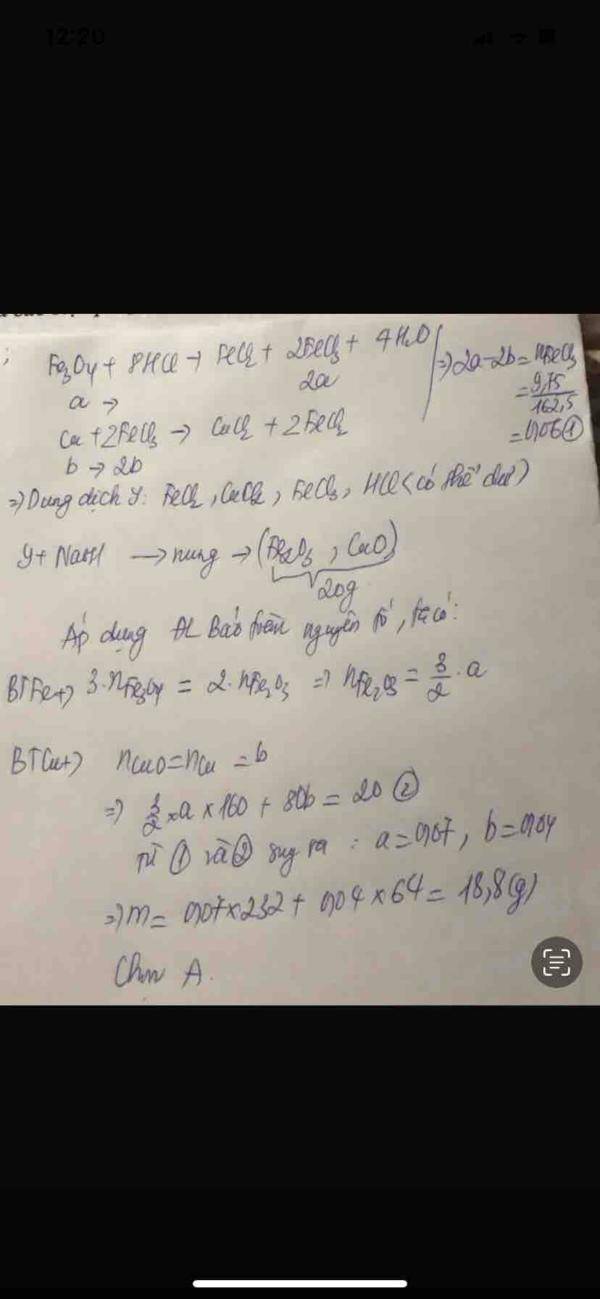 12:20
Fe₃O₄ + 8HCl → FeCl₂ + 2FeCl₃ + 4H₂O
a → 2a
Cu + 2FeCl₃ → CuCl₂ + 2FeCl₂
b → 2b
⇒ 2a - 2b = nFeCl₃
= 9,75/162,5
= 0,06 ①
⇒ Dung dịch Y: FeCl₂, CuCl₂, FeCl₃, HCl (có thể dư)
Y + NaOH → nung → (Fe₂O₃, CuO)
20g
Áp dụng ĐL Bảo toàn nguyên tố, ta có:
BTFe+) 3.nFe₃O₄ = 2.nFe₂O₃ ⇒ nFe₂O₃ = 3/2 . a
BTCu+) nCuO = nCu = b
⇒ 3/2 × a × 160 + 80b = 20 ②
Từ ① và ② suy ra : a = 0,07, b = 0,04
⇒ m = 0,07 × 232 + 0,04 × 64 = 18,8 (g)
Chọn A.